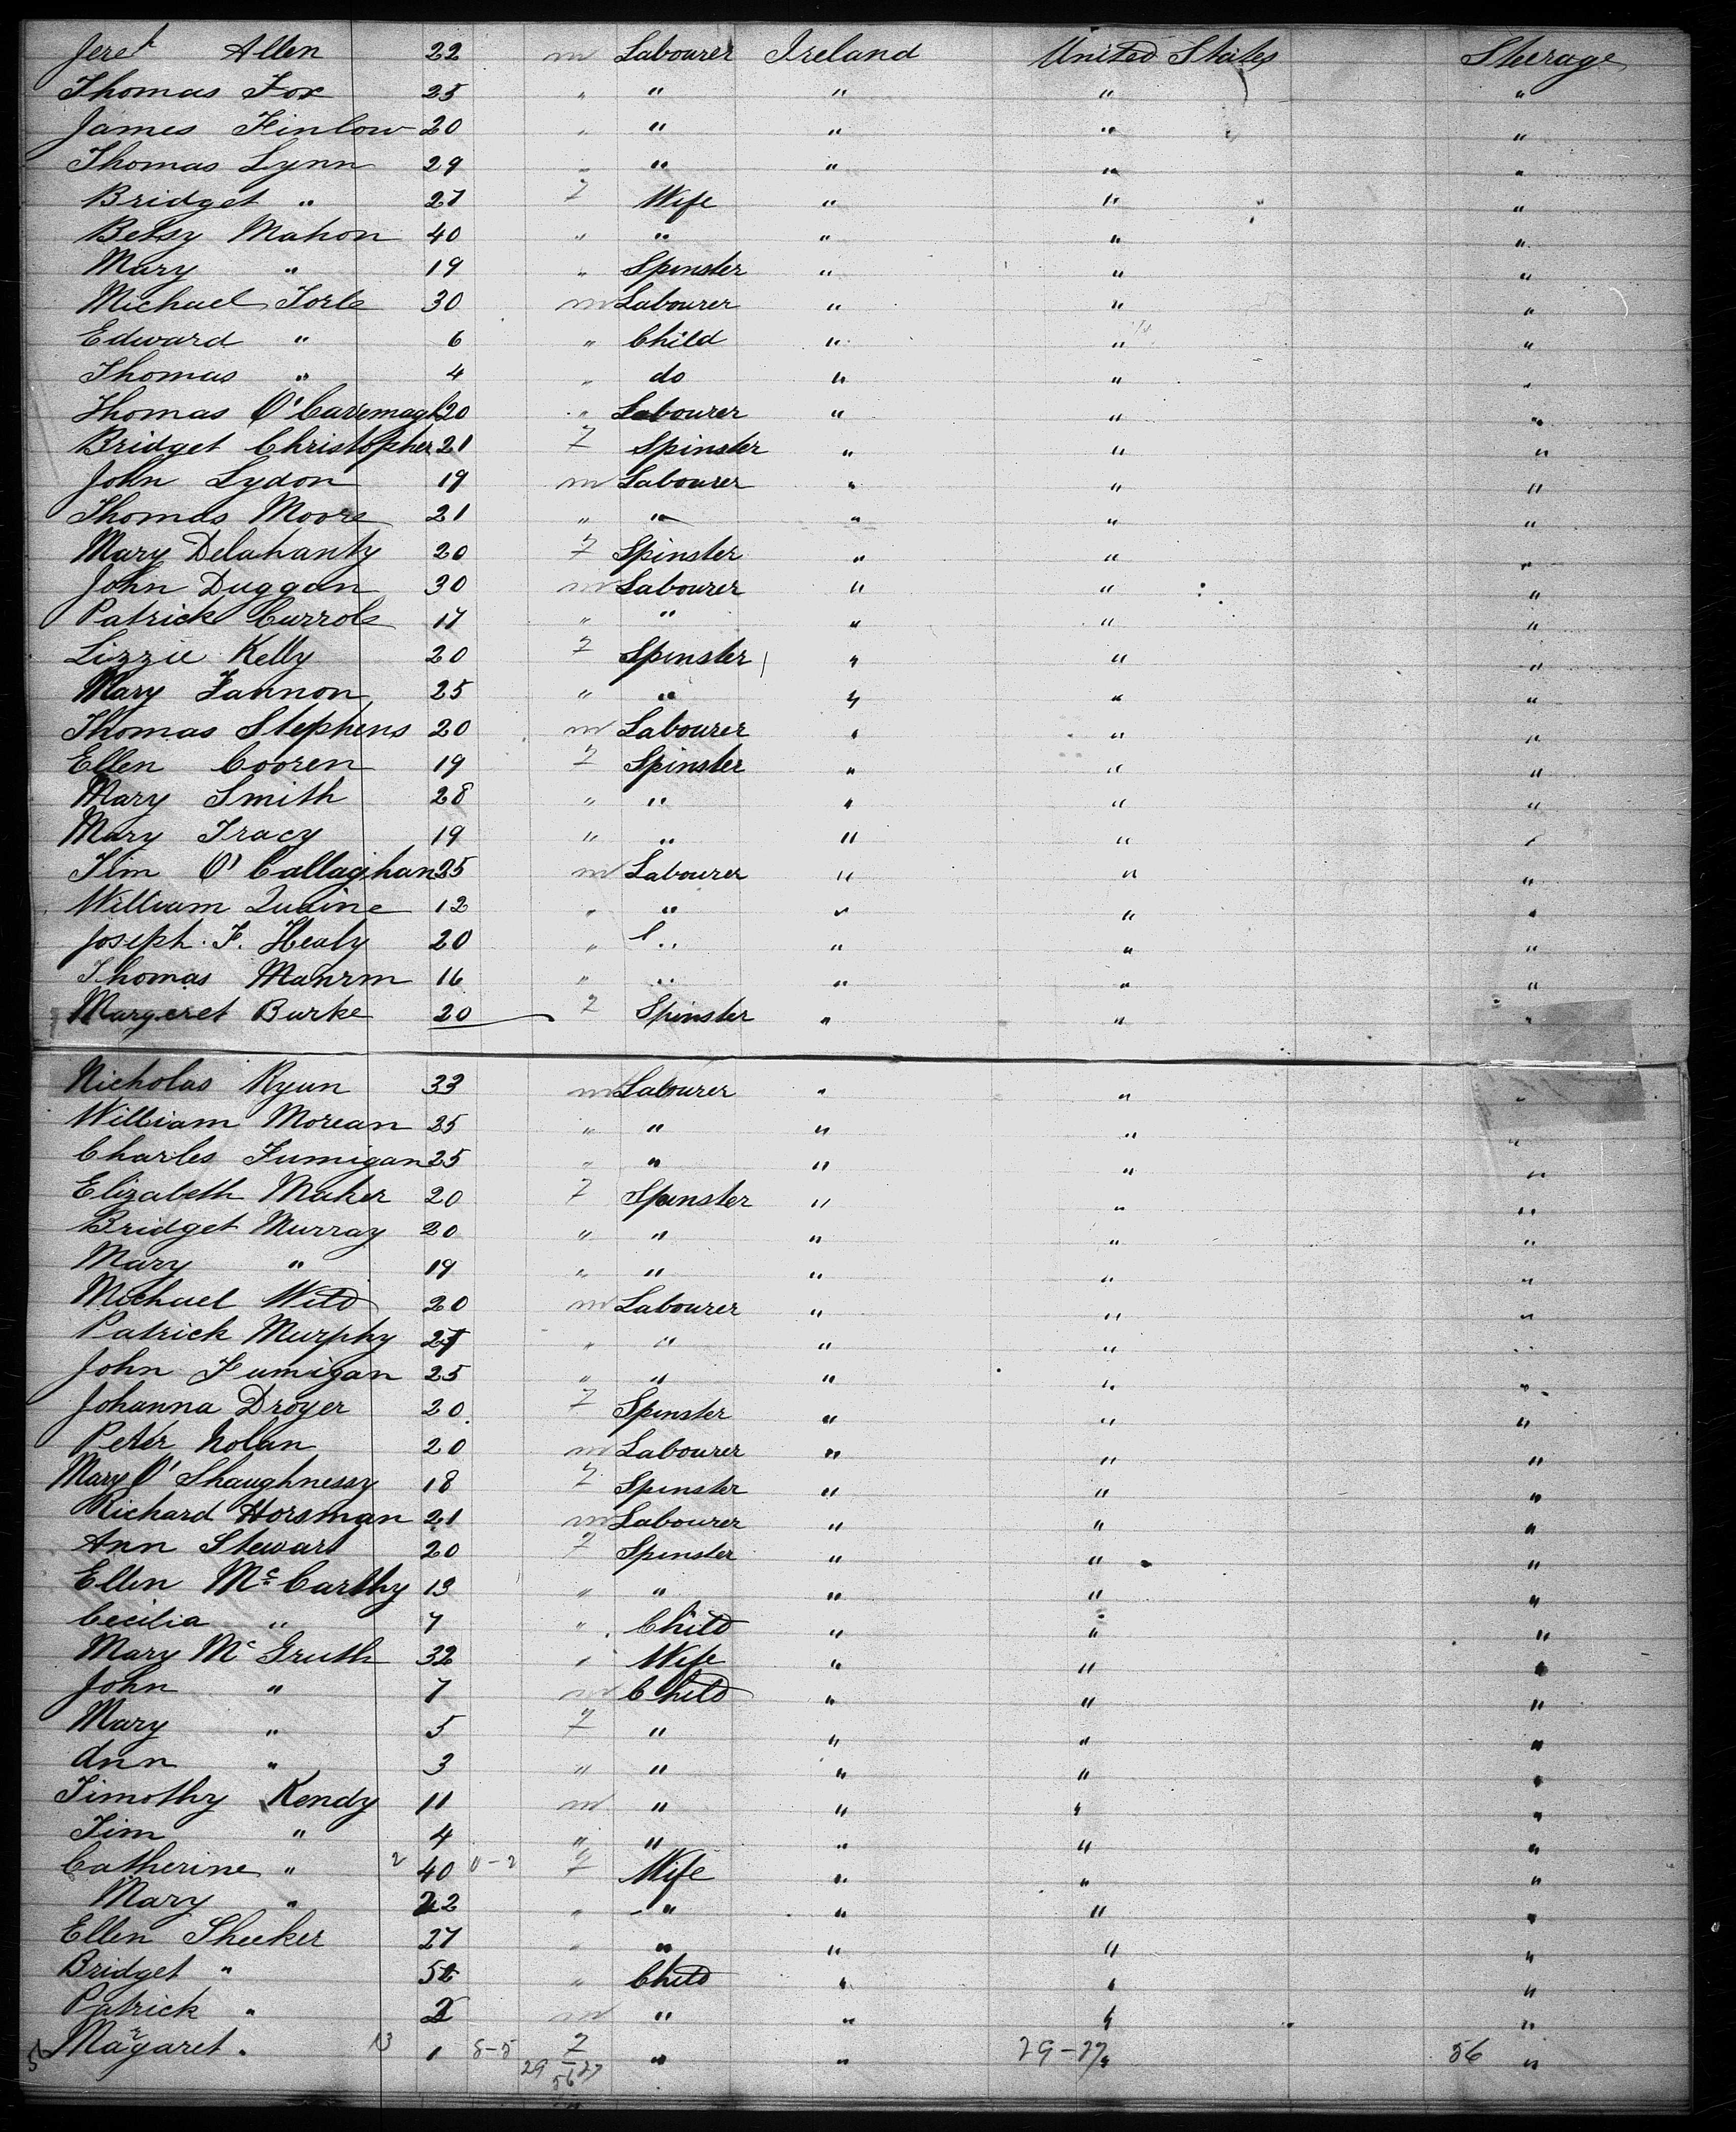 Jere Allen 22 m Labourer Ireland United States Steerage
Thomas Fox 25 " " " " "
James Finlow 20 " " " " "
Thomas Lynn 29 " " " " "
Bridget " 27 F Wife " " "
Betsy Mahon 40 " " " " "
Mary " 19 " Spinster " " "
Michael 30 m Labourer " " "
Edward " 6 " Child " " "
Thomas " 4 " do " " "
Thomas O'Cavemagh 20 " Labourer " " "
Bridget Christopher 21 F Spinster " " "
John Lydon 19 m Labourer " " "
Thomas Moore 21 " " " " "
Mary Delahanty 20 F Spinster " " "
John Duggan 30 m Labourer " " "
Patrick Carrole 17 " " " " "
Lizzie Kelly 20 F Spinster " " "
Mary Fannon 25 " " " " "
Thomas Stephens 20 m Labourer " " "
Ellen Cooren 19 F Spinster " " "
Mary Smith 28 " " " " "
Mary Tracy 19 " " " " "
Tim O'Callaghan 25 m Labourer " " "
William 12 " " " " "
Joseph F. Healy 20 " " " " "
Thomas 16 " " " " "
Margeret Burke 20 F Spinster " " "
Nicholas Ryan 33 m Labourer " " "
William Morean 25 " " " " "
Charles Fumigan 25 " " " " "
Elizabeth Maher 20 F Spinster " " "
Bridget Murray 20 " " " " "
Mary " 19 " " " " "
Michael Wild 20 m Labourer " " "
Patrick Murphy " " " " "
John Fumigan 25 " " " " "
Johanna Droyer 20 F Spinster " " "
Peter Nolan 20 m Labourer " " "
Mary O'Shaughnessy 18 F Spinster " " "
Richard Horsman 21 m Labourer " " "
Ann Stewart 20 F Spinster " " "
Ellen McCarthy 13 " " " " "
Cecilia " 7 " Child " " "
Mary Mc Gruth 32 " Wife " " "
John " 7 m Child " " "
Mary " 5 F " " " "
Ann " 3 " " " " "
Timothy Kendy 11 m " " " "
Tim " 4 " " " " "
Catherine " 2 40 0-2 F Wife " " "
Mary " 22 " " " " "
Ellen Sheeker 27 " " " " "
Bridget " 5 " Child " " "
Patrick " 2 m " " " "
56 Margaret " 13 1 5-5 F " " 29-27 " 56 "
29-27
56